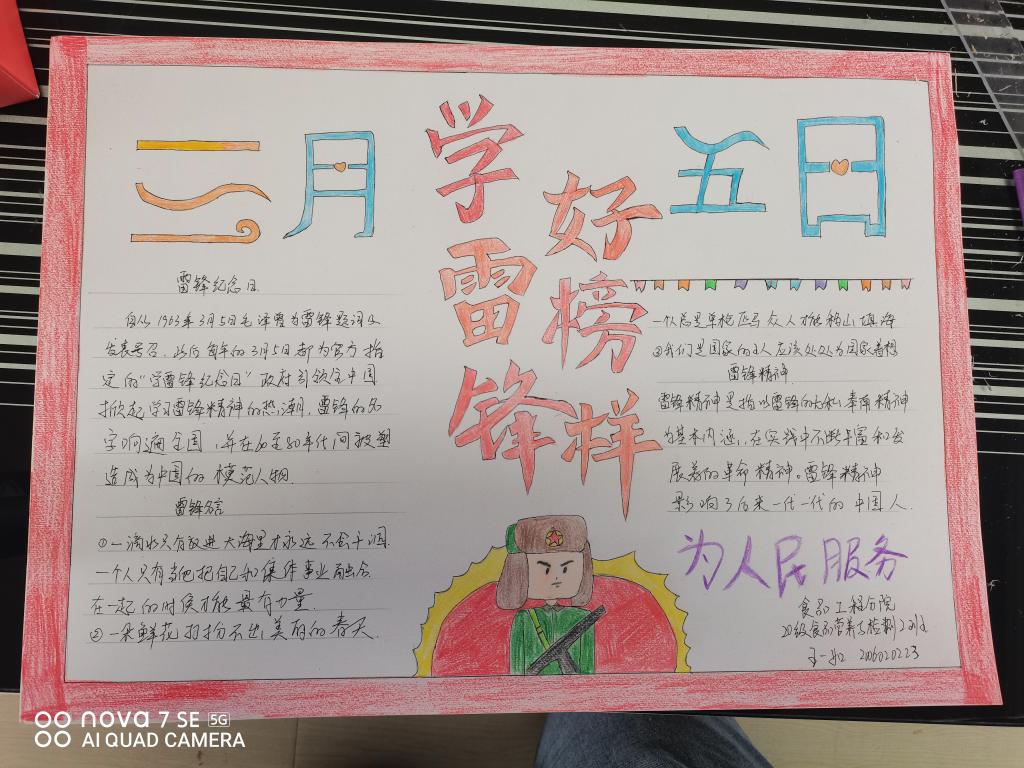 三月
学雷锋
好榜样
五日
雷锋纪念日
自从1963年3月5日毛泽东为雷锋题词并
发表号召，此后每年的3月5日都为官方指
定的“学雷锋纪念日”政府引领全中国
掀起学习雷锋精神的热潮，雷锋的名
字响遍全国，并在60至80年代间被塑
造成为中国的模范人物.
雷锋名言
①一滴水只有放进大海里才永远不会干涸.
一个人只有当他把自己和集体事业融合
在一起的时侯才能最有力量.
②一朵鲜花打扮不出美丽的春天.
一个人总是单枪匹马众人才能移山填海
③我们是国家的主人应该处处为国家着想
雷锋精神.
雷锋精神是指以雷锋的无私奉献精神
为基本内涵,在实践中不断丰富和发
展着的革命精神。雷锋精神
影响了后来一代一代的中国人.
为人民服务
食品工程学院
20级食品营养与检测
王一 206020223
nova 7 SE 5G
AI QUAD CAMERA